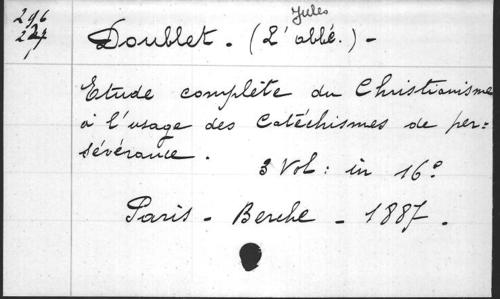 296
227
Jules
Doublet. (L'abbé.) -
Etude complète du Christianisme
à l'usage des Catéchismes de per-
sévérance.
3 Vol: in 16°
Paris - Berche - 1887.